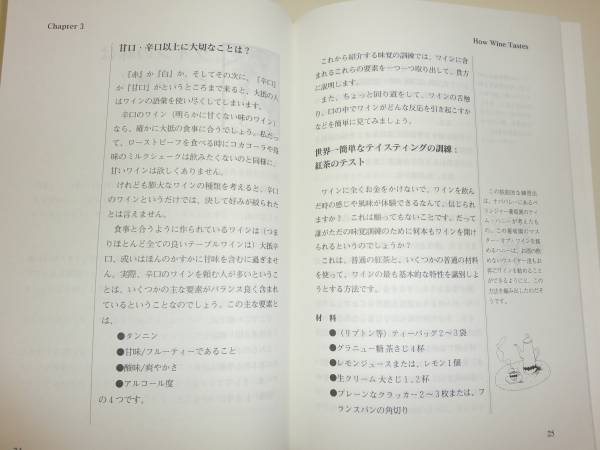 Chapter 3
甘口・辛口以上に大切なことは?
『赤』か『白』か、そしてその次に、『辛口』
か『甘口』がというところまで来ると、大抵の人
はワインの語彙を使い尽くしてしまいます。
辛口のワイン(明らかに甘くない味のワイン)
なら、確かに大抵の食事に合うでしょう。私だっ
て、ローストビーフを食べる時にコカコーラや苺
味のミルクシェークは飲みたくないのと同様に、
甘いワインは欲しくありません。
けれども膨大なワインの種類を考えると、辛口
のワインというだけでは、決して好みが絞られた
とは言えません。
食事と合うように作られているワインは(つま
りほとんど全ての良いテーブルワインは)大抵辛
口、或いはほんのかすかに甘味を含むに過ぎませ
ん。実際、辛口のワインを頼む人が多いというこ
とは、いくつかの主な要素がバランス良く含まれ
ているということなのでしょう。この主な要素と
は、
●タンニン
●甘味/フルーティーであること
●酸味/爽やかさ
●アルコール度
の4つです。
How Wine Tastes
これから紹介する味覚の訓練では、ワインに含
まれるこれらの要素を一つ一つ取り出して、貴方
に説明します。
また、ちょっと回り道をして、ワインの舌触
り、口の中でワインがどんな反応を引き起こすか
などを簡単に見てみましょう。
世界一簡単なテイスティングの訓練:
紅茶のテスト
ワインに全くお金をかけないで、ワインを飲ん
だ時の感じや風味が体験できるなんて、信じられ
ますか? これは願ってもないことです。だって
誰がただの味覚訓練のために何本もワインを開け
られるというのでしょうか?
これは、普通の紅茶と、いくつかの普通の材料
を使って、ワインの最も基本的な特性を識別しよ
うとする方法です。
材 料
●(リプトン等)ティーバッグ2〜3袋
●グラニュー糖 茶さじ4杯
●レモンジュースまたは、レモン1個
●生クリーム 大さじ1,2杯
●プレーンなクラッカー2〜3枚または、フ
ランスパンの角切り
25